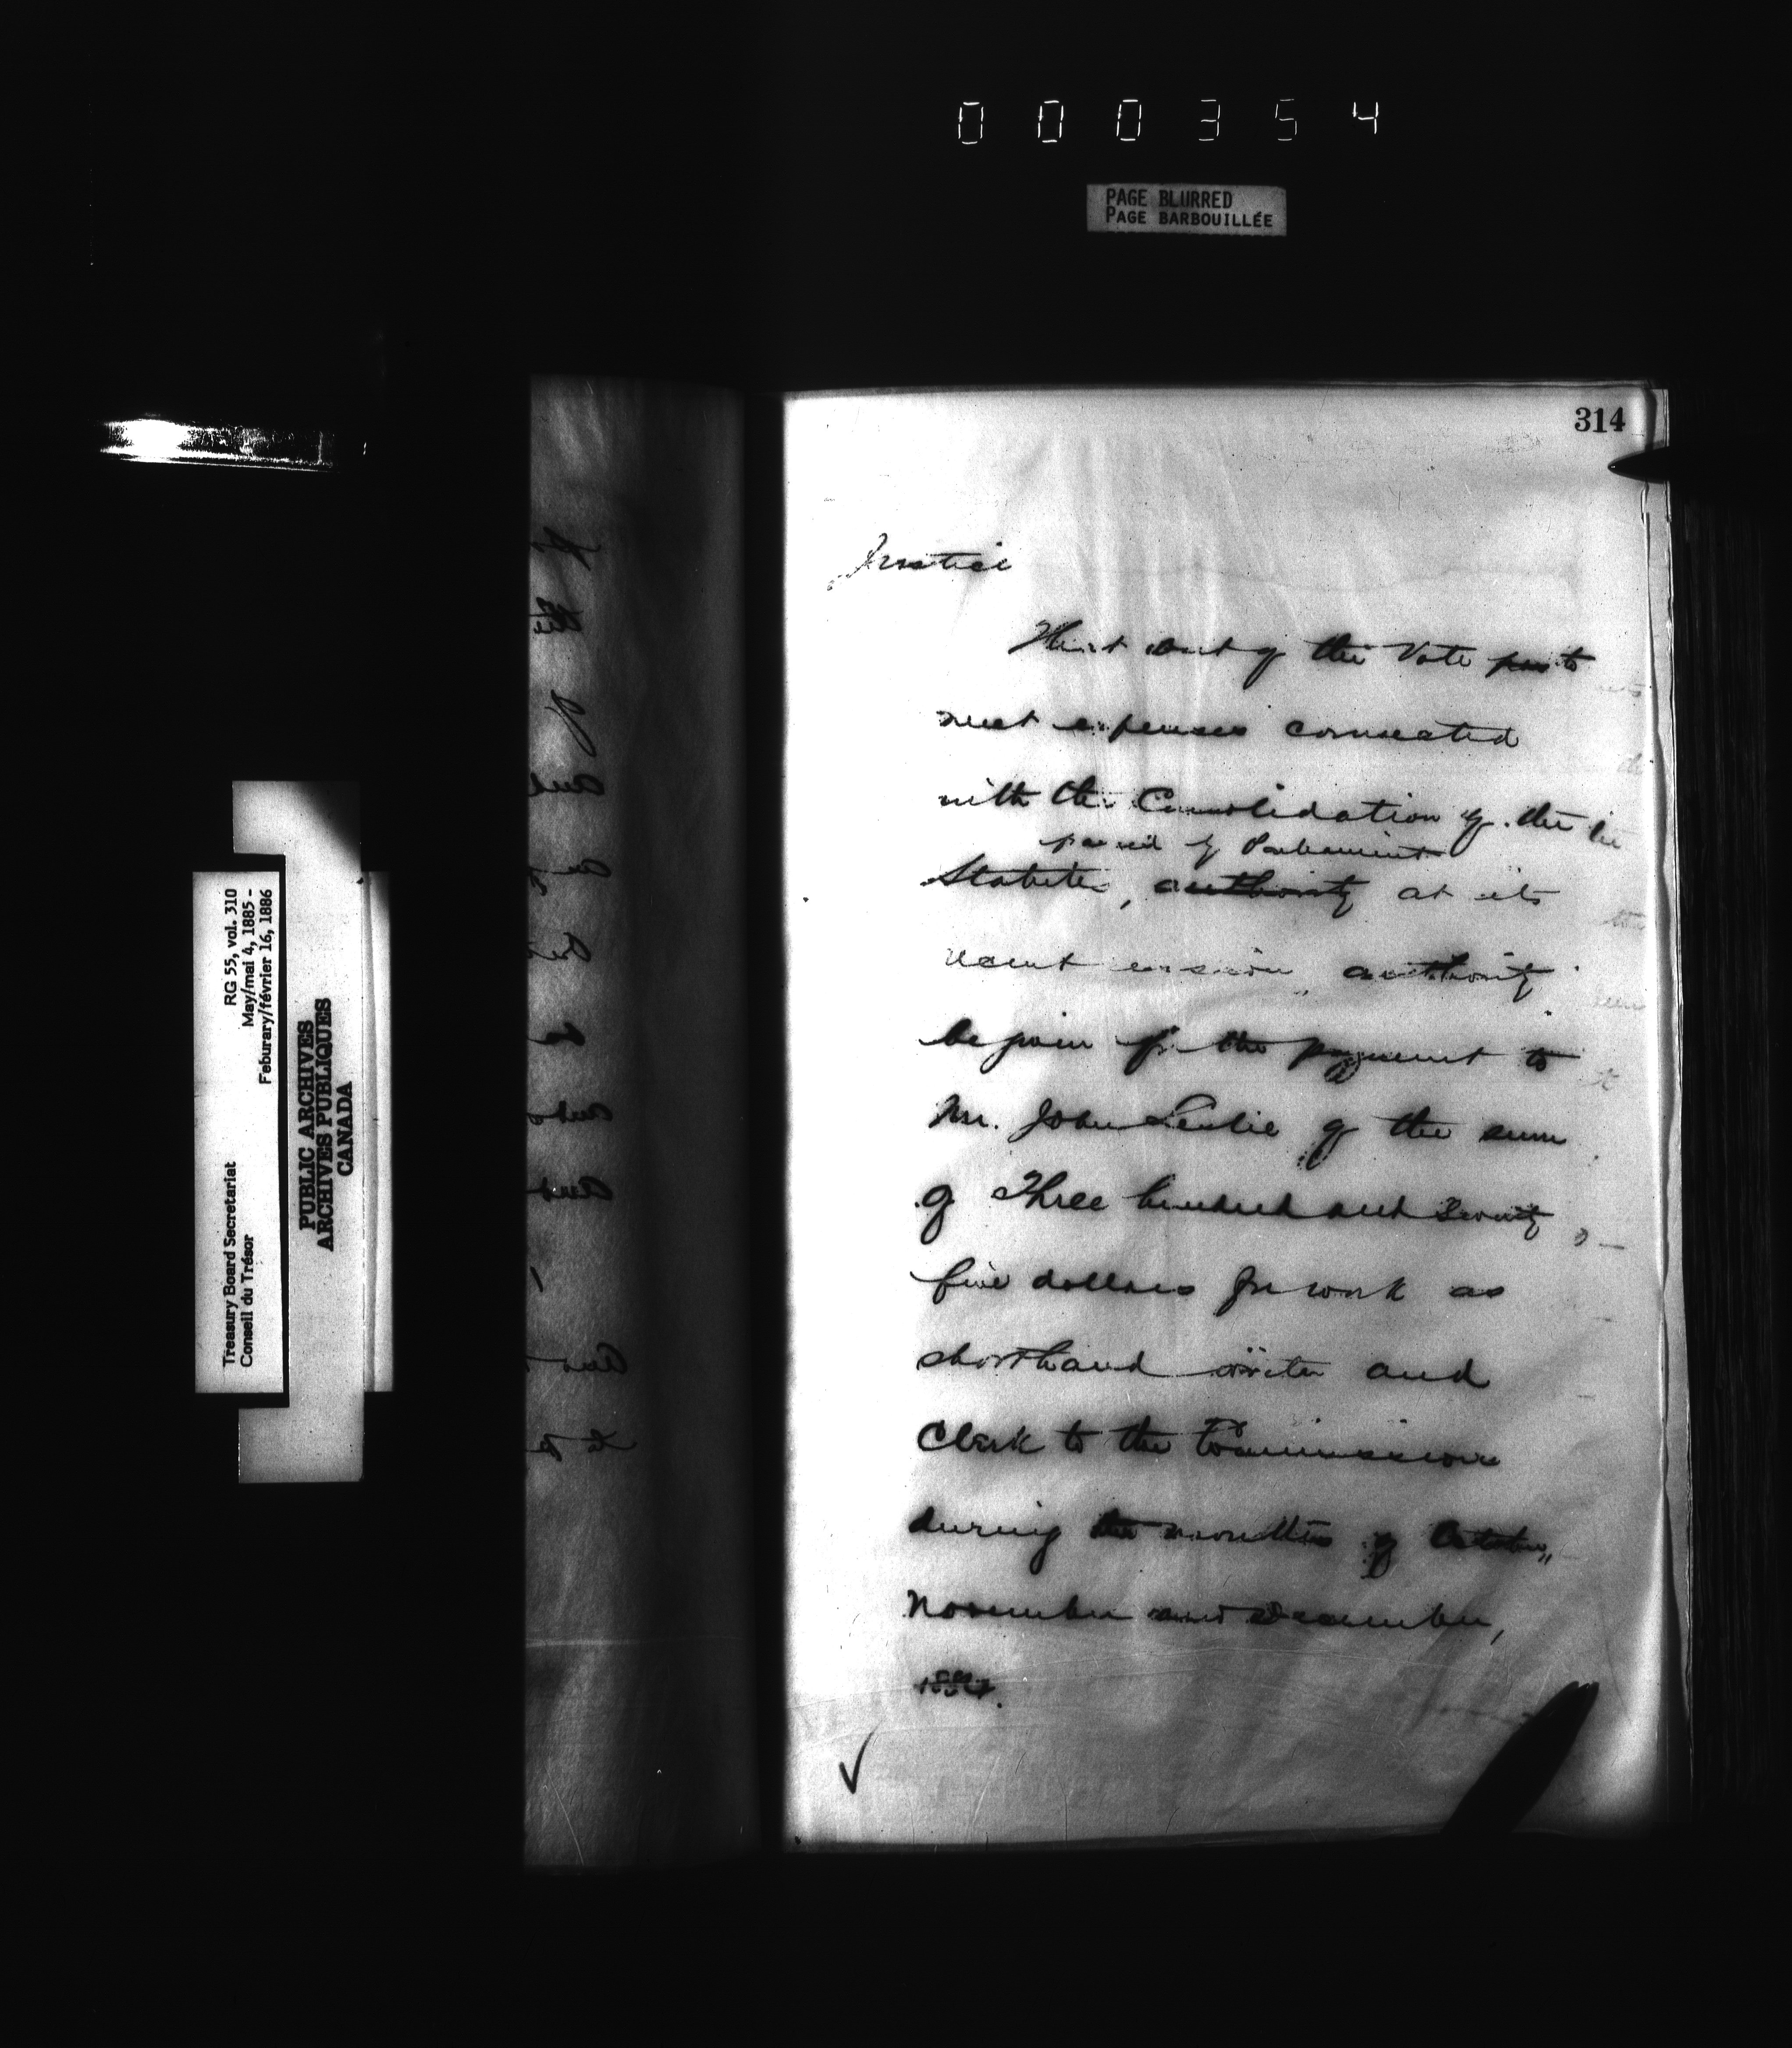 000354
PAGE BLURRED
PAGE BARBOUILLÉE
314
Justice
That out of the Vote to
meet expenses connected
with the Consolidation of the
passed by Parliament
Statutes, authority at its
recent session, authority
be given for the payment to
Mr. John Leslie of the sum
of Three hundred and Seventy
five dollars for work as
shorthand writer and
Clerk to the Commission
during the months of October,
November and December,
1884.
RG 55, vol. 310
May/mai 4, 1885 -
Feburary/février 16, 1886
Treasury Board Secretariat
Conseil du Trésor
PUBLIC ARCHIVES
ARCHIVES PUBLIQUES
CANADA